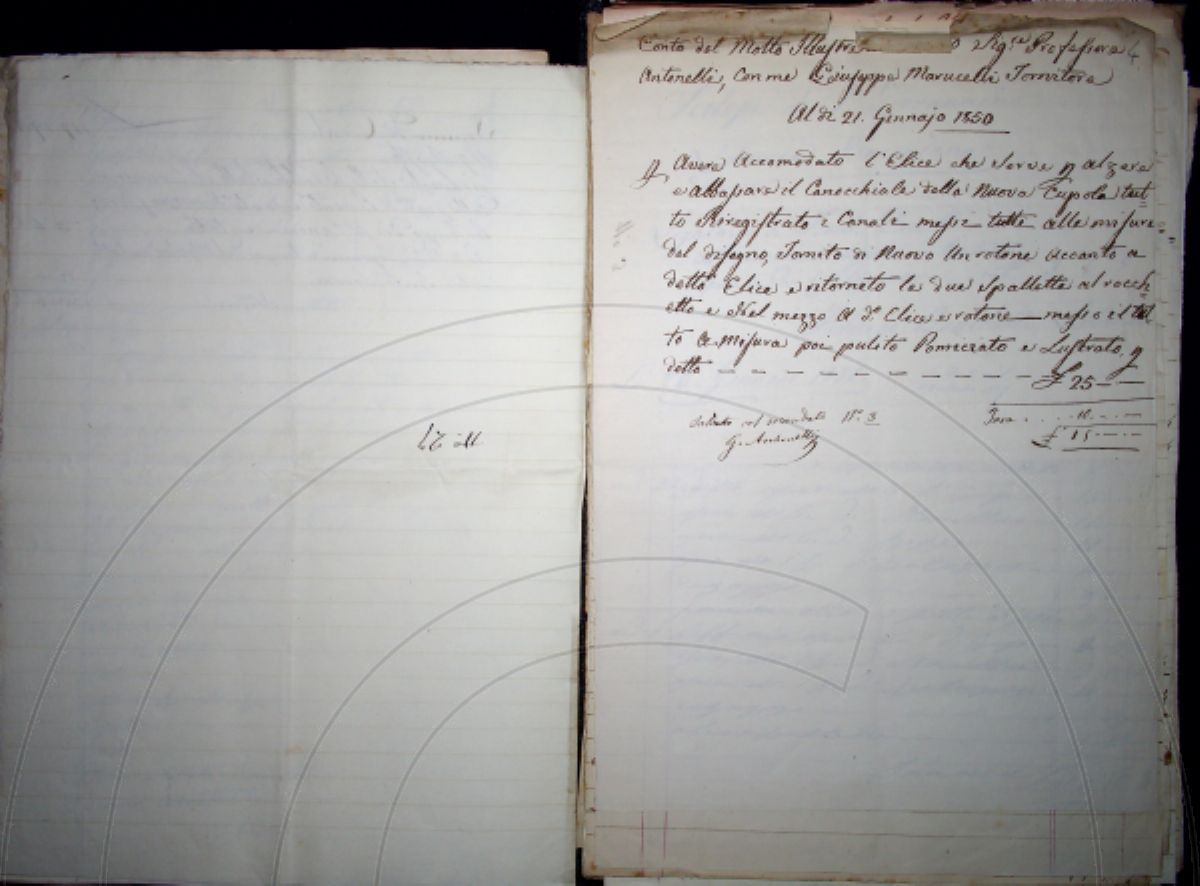 Conto del Molto Illustre o Sig.re Professore
Antonelli, con me Giuseppe Marucelli Tornitore
Al di 21. Gennajo 1850
p Avere Accomodato l'Elice che serve p alzare
e abbassare il Canocchiale della Nuova Cupola tut=
to Riregistrato i Canali messi tutti alle misure
del disegno, Tornito di Nuovo Un rotone accanto a
detto Elice e ritorneto le due Spallette al rocch
etto e Nel mezzo a do. Elice e rotone messo il tut
to a Misura poi pulito Pomiciato e Lustrato, p
detto — — — — — — — — — £ 25 — —
saldato col mandato No. 3
G. Antonelli
Tara . . . 10. — . —
£ 15 — . —